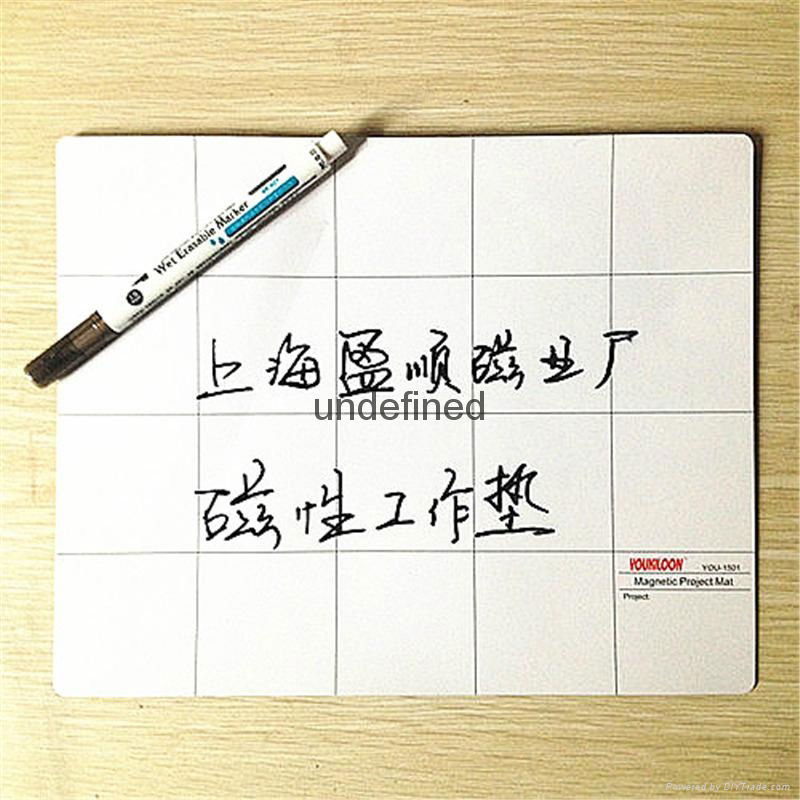 Wet Erasable Marker
上海盈顺磁业厂
undefined
磁性工作垫
YOUKILOON YOU-1501
Magnetic Project Mat
Project:
Powered by DIYTrade.com